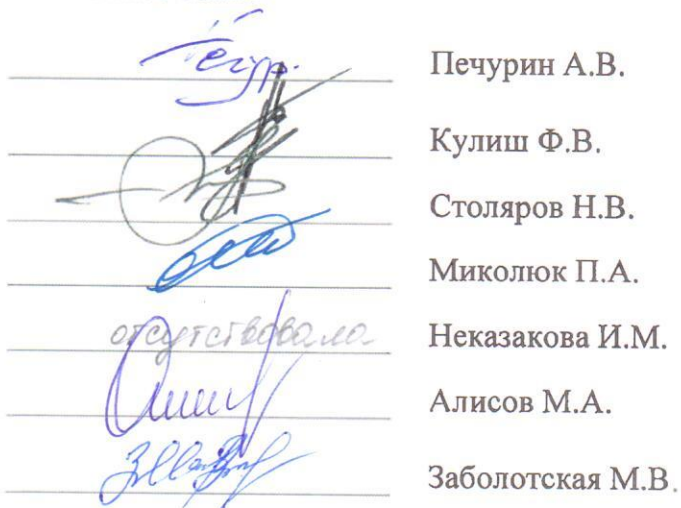 Печурин А.В.
Кулиш Ф.В.
Столяров Н.В.
Миколюк П.А.
отсутствовала Неказакова И.М.
Алисов М.А.
Заболотская М.В.